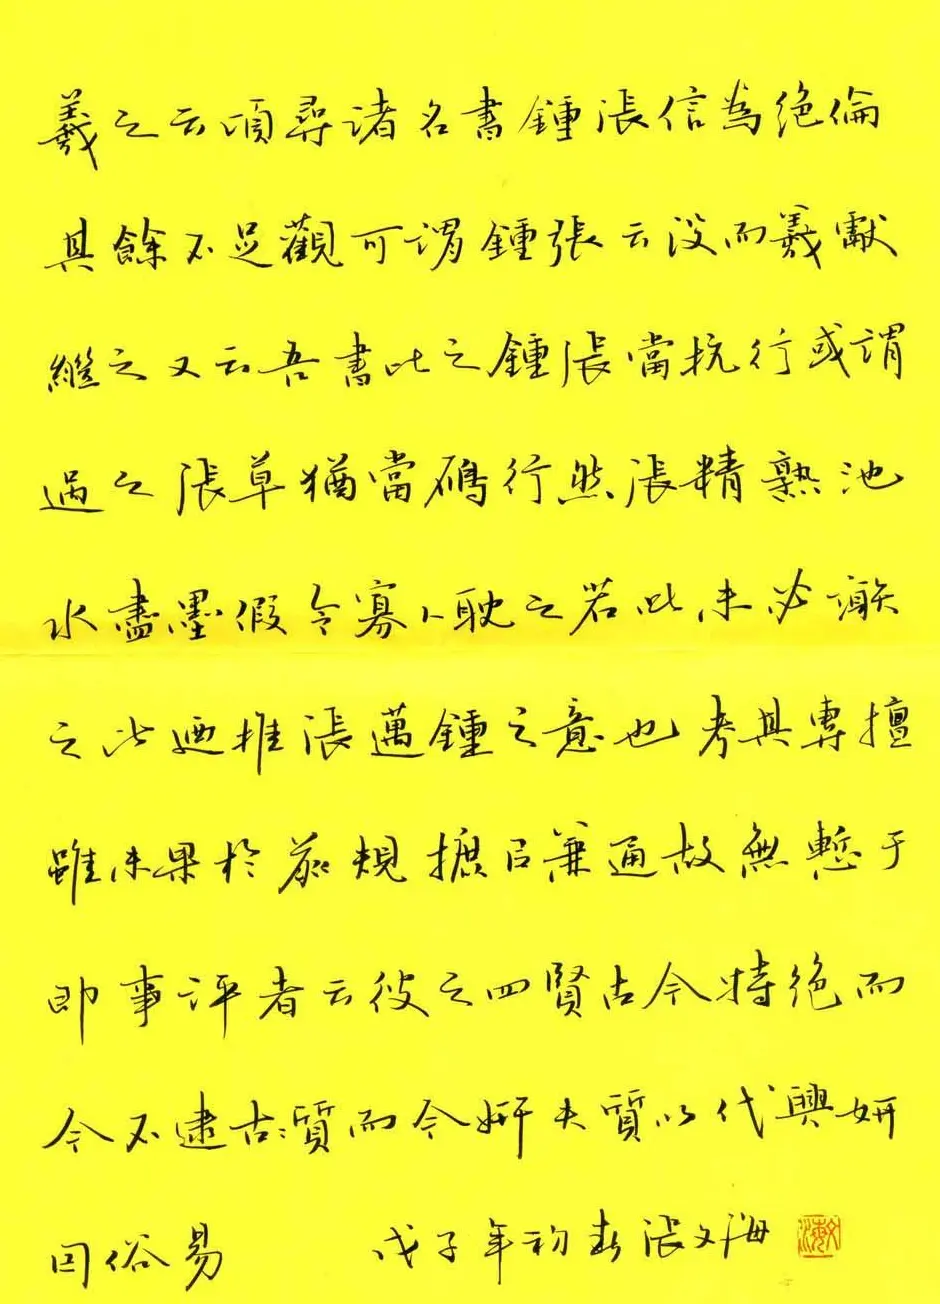 羲之云頃尋諸名書鍾張信為絕倫
其餘不足觀可謂鍾張云没而羲獻
繼之又云吾書比之鍾張當抗行或謂
過之張草猶當鴈行然張精熟池
水盡墨假令寡人耽之若此未必謝
之此廼推張邁鍾之意也考其專擅
雖未果於前規摭以兼通故無慙于
即事評者云彼之四賢古今特絕而
今不逮古古質而今妍夫質以代興妍
因俗易 戊子年初春張文海
文海